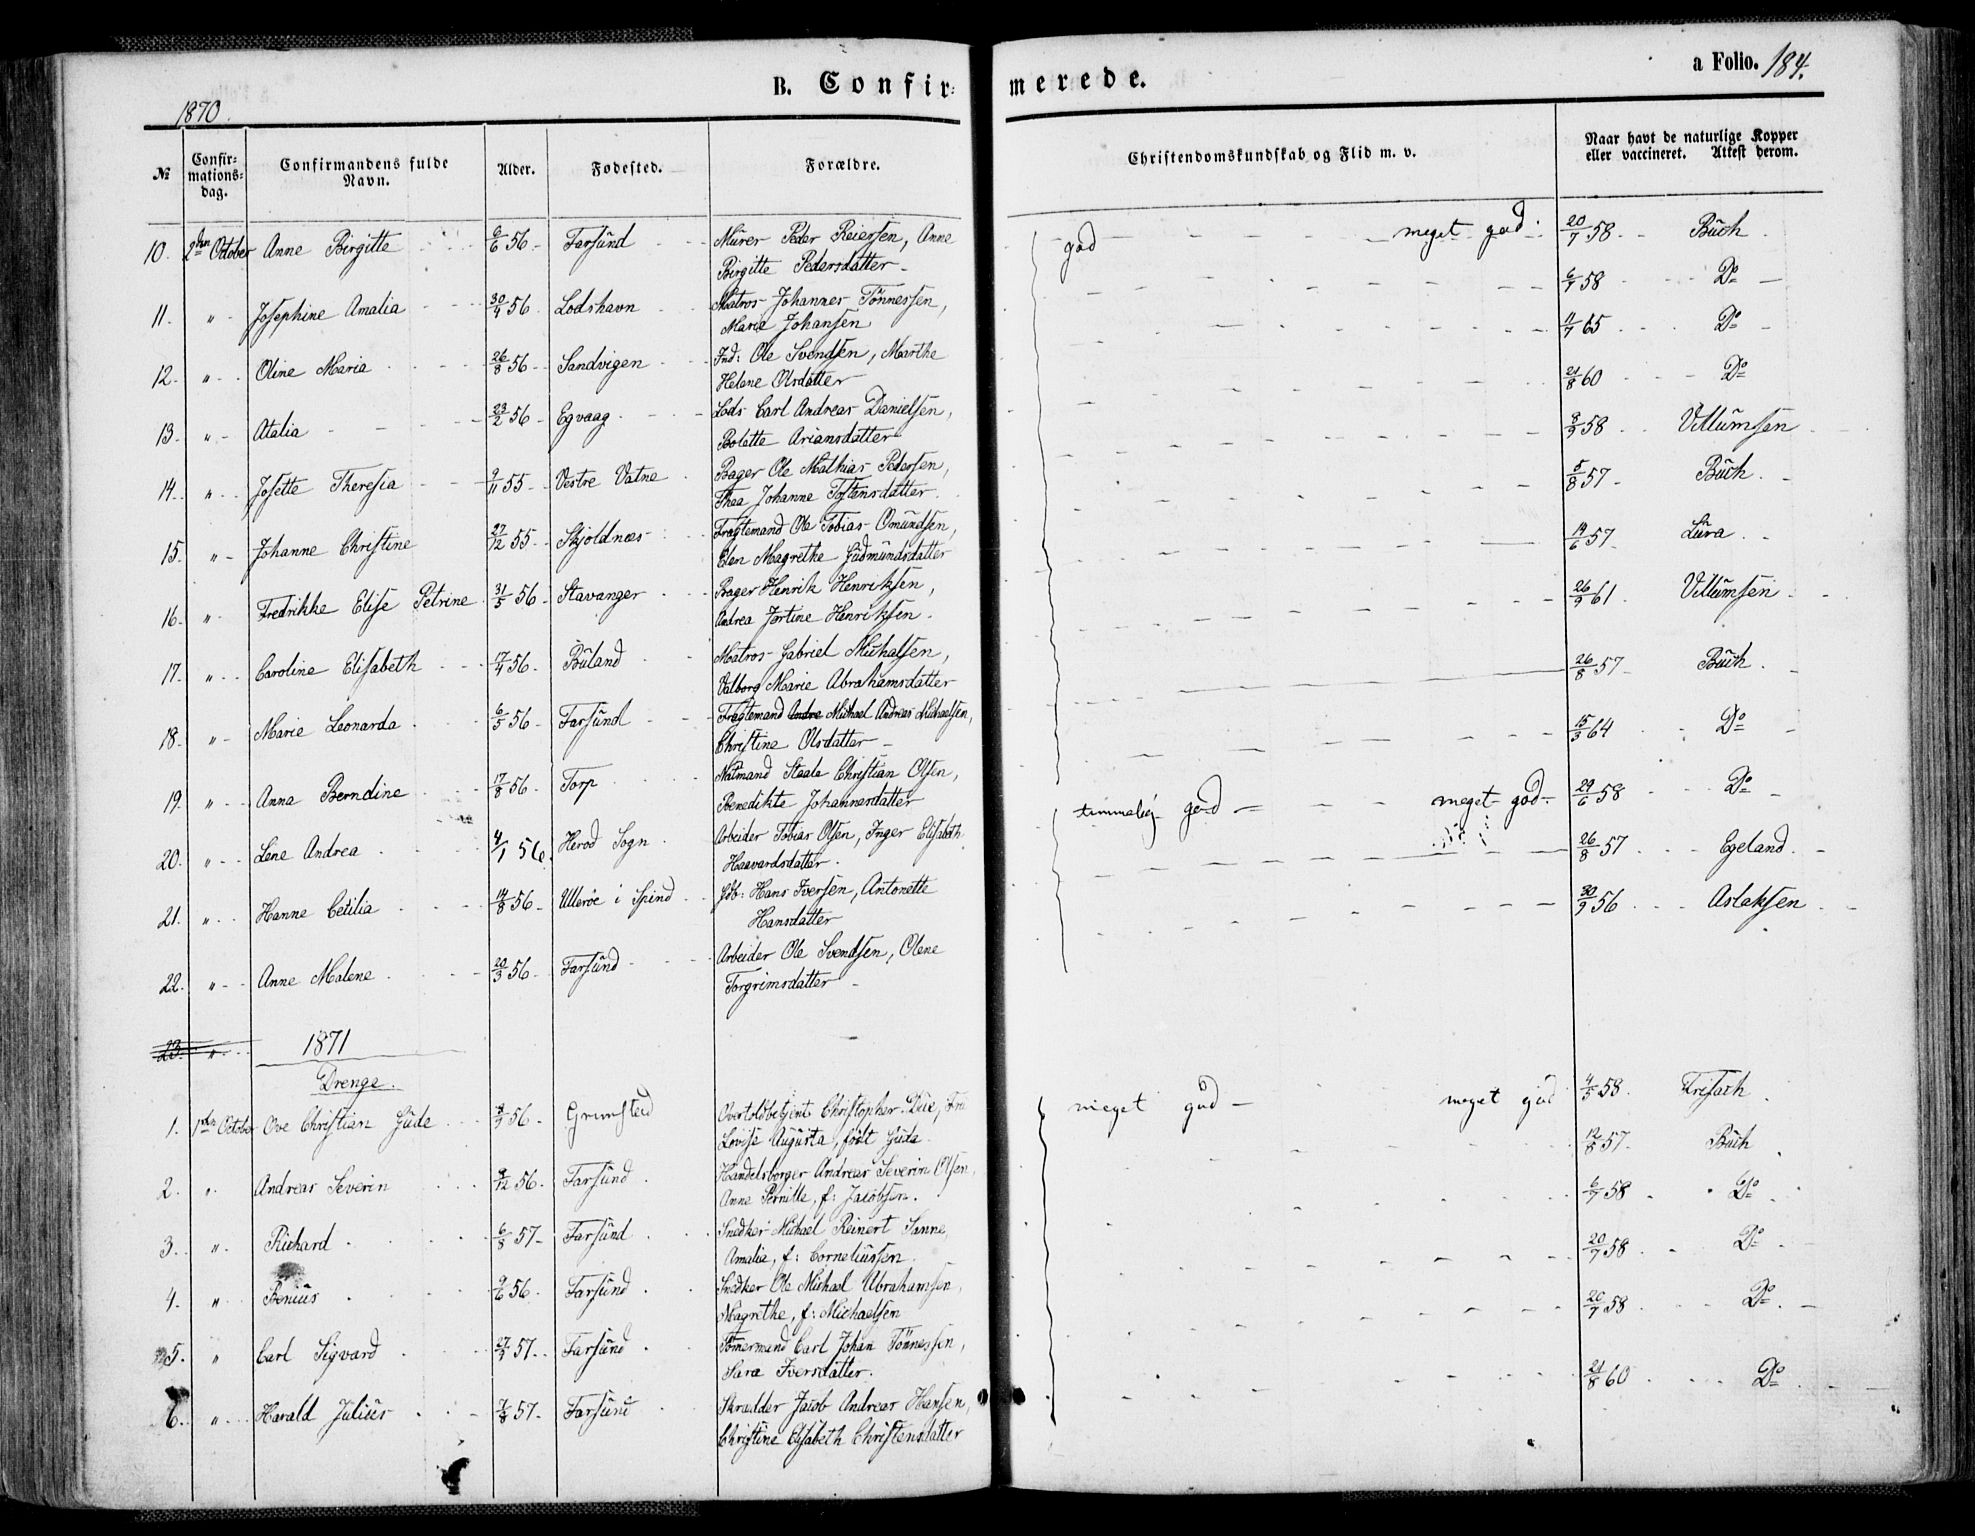 B. Confirmerede.
a Folio. 184.
1870.
№ Confirmationsdag. Confirmandens fulde Navn. Alder. Fødested. Forældre. Christendomskundskab og Flid m. v. Naar havt de naturlige Kopper eller vaccineret. Attest derom.
10. 2den October Anne Birgitte 6/6 56 Farsund Murer Peder Reiersen, Anne god meget god. 20/7 58 Buch
Birgitte Pedersdatter
11. " Josephine Amalia 30/4 56 Lodshavn Matros Johannes Tönnessen, 6/7 58 Do
Marie Johansen
12. " Oline Maria 26/8 56 Sandvigen Ind: Ole Svendsen, Marthe 11/7 65 Do
Helene Olsdatter
13. " Atalia 23/2 56 Egvaag Lods Carl Andreas Danielsen, 21/8 60 Do
Bolette Ariansdatter
14. " Josette Theresia 9/11 55 Vestre Vatne Bager Ole Mathias Pedersen, 8/9 58 Villumsen
Thea Johanne Tostensdatter
15. " Johanne Christine 27/12 55 Skjoldnæs Fragtemand Ole Tobias Omundsen, 5/8 57 Buch
Elen Magrethe Gudmundsdatter
16. " Fredrikke Elise Petrine 31/5 56 Stavanger Bager Henrik Henriksen, 14/6 57 Lura
Andrea Jortine Henriksen
17. " Caroline Elisabeth 7/4 56 Buland Matros Gabriel Michalsen, 26/9 61 Villumsen
Valborg Marie Abrahamsdatter
18. " Marie Leonarda 6/5 56 Farsund Fragtemand Andre Michael Andreas Michaelsen, 26/8 57 Buch
Christine Olsdatter
19. " Anna Berndine 17/8 56 Torp Natmand Steale Christian Olsen, 15/3 64 Do
Benedikte Johannesdatter
20. " Lene Andrea 4/1 56 Herod Sogn Arbeider Tobias Olsen, Inger Elisabeth temmelig god meget god. 29/6 58 Do
Haavardsdatter
21. " Hanne Cecilia 14/8 56 Ulleröe i Spind Gdb: Hans Iversen, Antonette 26/8 57 Egeland
Hansdatter
22. " Anne Malene 20/3 56 Farsund Arbeider Ole Svendsen, Olene 30/9 56 Aslaksen
Torgrimsdatter
23. " 1871
Drenge.
1. 1ste October Ove Christian Gude 3/9 56 Grimsted Overtoldbetjent Christopher Due, Fru meget god meget god 4/5 58 Frisach
Lovise Augusta, födt Gude
2. " Andreas Severin 9/12 56 Farsund Handelsborger Andreas Severin Olsen, 12/8 57 Buch
Anne Pernille, f: Jacobsen.
3. " Richard 6/8 57 Farsund Snedker Michael Reinert Sanne, 6/7 58 Do
Amalia, f: Corneliussen
4. " Benius 9/6 56 Farsund Snedker Ole Michael Abrahamsen, 20/7 58 Do
Magrethe, f: Michaelsen
5. " Carl Sigvard 27/3 57 Farsund Tömermand Carl Johan Tönnessen, 20/7 58 Do
Sara Iversdatter.
6. " Harald Julius 7/8 57 Farsund Skrædder Jacob Andreas Hansen, 21/8 60 Do
Christine Elisabeth Christensdatter